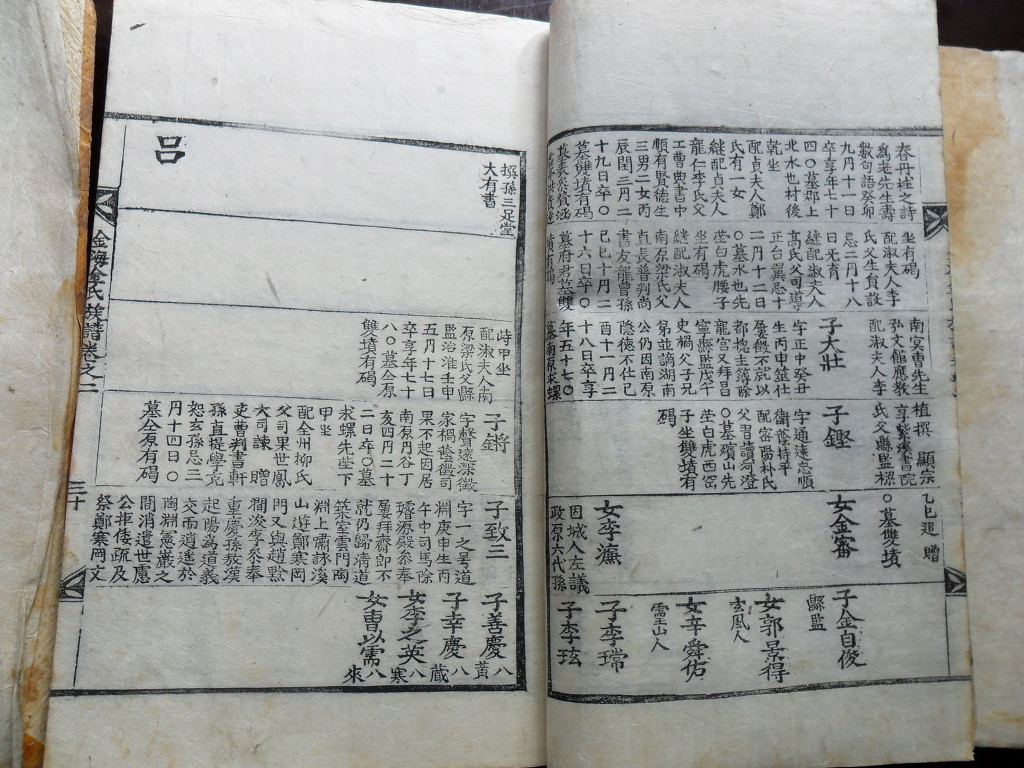 春丹桂之詩
爲老先生壽
數句語癸卯
九月十一日
卒享年七十
四〇墓郡上
北水也村後
乾坐
配貞夫人鄭
氏有一女
繼配貞夫人
龍仁李氏父
工曹典書中
順有賢德生
三男二女丙
辰閏三月二
十九日卒〇
墓雙墳有碣
坐有碣
配淑夫人李
氏父生員設
忌二月十八
日无育
繼配淑夫人
高氏父司導
正台翼忌十
二月十二日
〇墓水也先
塋白虎腰子
坐有碣
繼配淑夫人
南原梁氏父
直長普判尚
書友龍曾孫
己巳十月二
十六日卒〇
墓府君墓雙
墳有碣
南冥曺先生
弘文館應教
配淑夫人李
子大壯
字正中癸丑
生丙申筮仕
屢徵不就以
都摠主薄除
龍宮又拜昌
寧縣監戊午
史禍父子兄
弟並謫湖南
公仍因南原
隱德不仕己
酉十一月二
十八日卒享
年五十七〇
墓南原求螺
植撰 顯宗
享紫溪書院
氏父縣監標
子鏗
字通遠忠順
衛 持平
配密陽朴氏
父習讀河澄
〇墓殯山先
塋白虎西
子坐雙墳有
碣
乙巳追 贈
〇墓雙墳
女金審
女李濂
固城人左議
政原六代孫
子金自俊
縣監
女郭景得
玄風人
女辛舜佑
靈山人
子李瑺
子李玹
撰孫三足堂
大有書
呂
峙甲坐
配淑夫人南
原梁氏父縣
監治淮壬申
五月十七日
卒享年七十
八〇墓合原
雙墳有碣
子鏘
字聲遠深徵
家禍蔭饌司
果不起因居
南原月谷丁
亥四月二十
二日卒〇墓
求螺先塋下
甲坐
配全州柳氏
父司果世鳳
大司諫 贈
吏曹判書軒
孫直提學克
恕玄孫忌三
月十四日〇
墓合原有碣
子致三
字一之號道
淵庚申生丙
午中司馬除
璿源殿參奉
屢拜齋郎不
就仍歸清道
築室雲門陶
淵上嘯詠溪
山遊鄭寒岡
門又與趙黙
澗浚李參奉
重慶孫敖漢
起陽為道義
交而逍遙於
陶淵憲巖之
間消遣世慮
公拒倭疏及
祭鄭寒岡文
子善慶 八黃
子幸慶 八藏
女李之英 八寒
女曺以需 八來
金海金氏族譜卷之二
三十